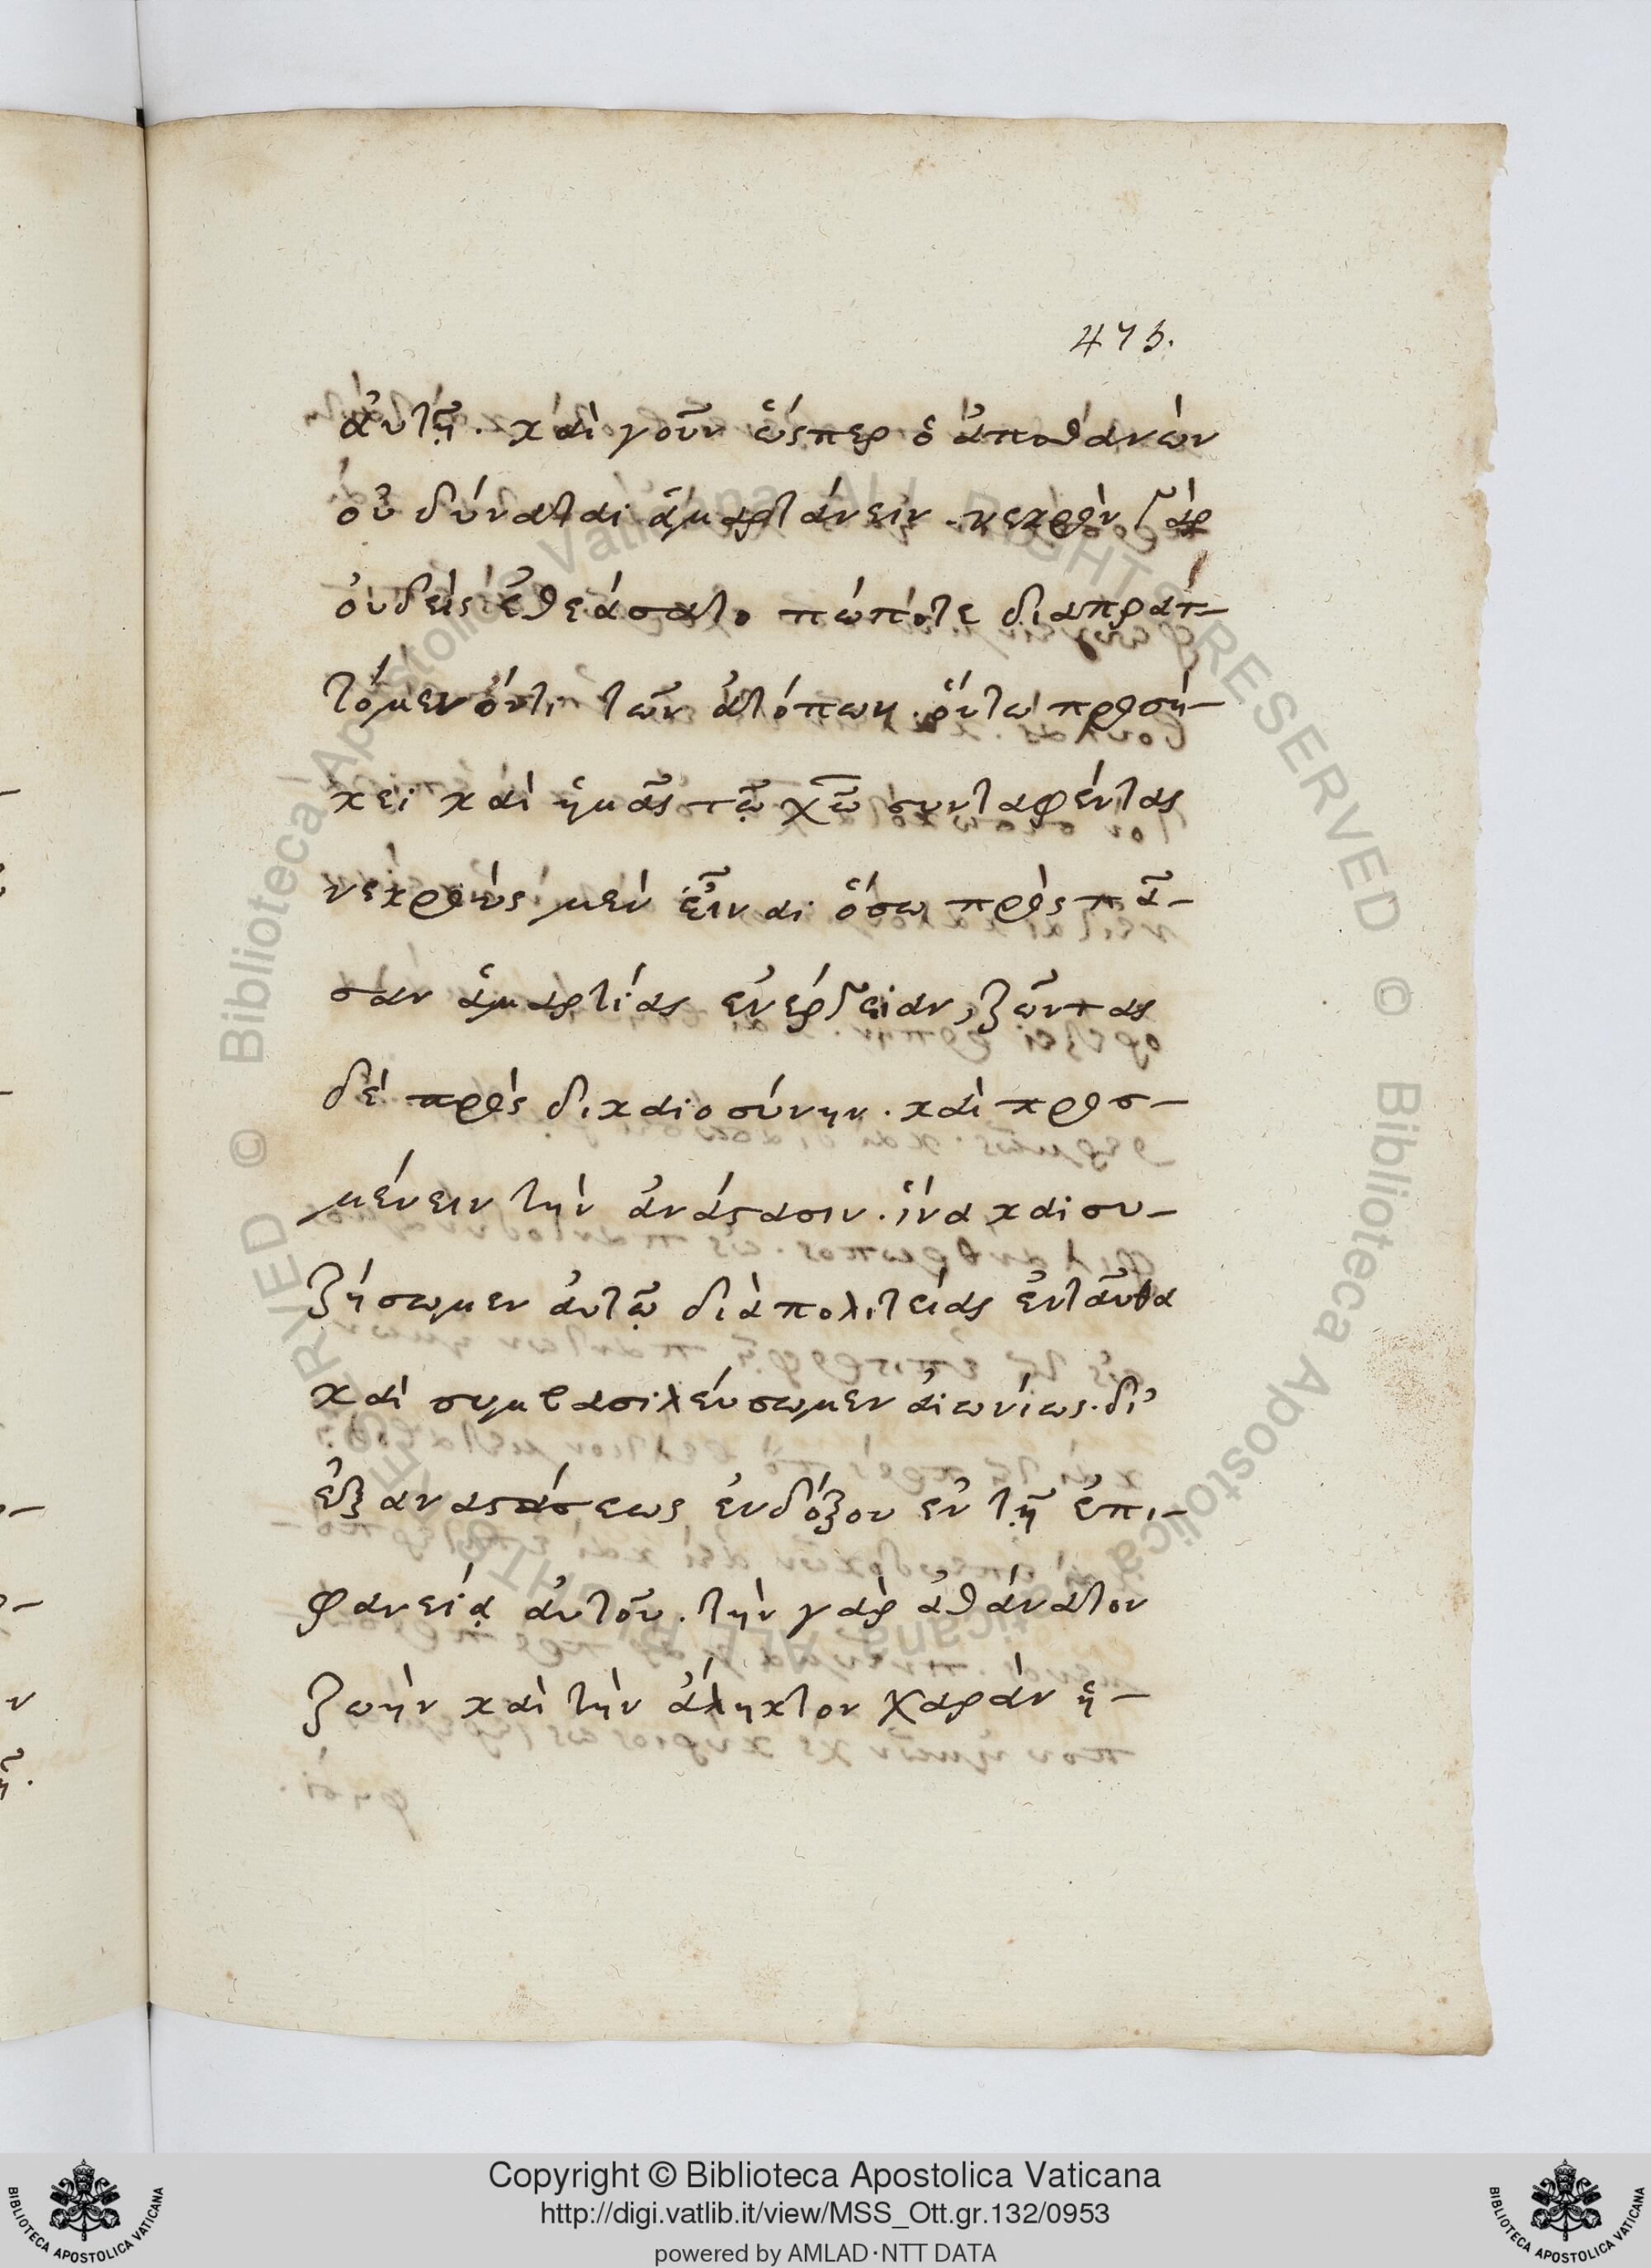 473.
ἀυτῇ. καὶ γοῦν ὥσπερ ὁ ἀποθανὼν
οὐ δύναται ἁμαρτάνειν. νεκρὸν γὰρ
ὀυδεὶς ἐθεάσατο πώποτε διαπρατ-
τόμενόντι τῶν ἀτόπων. ὅυτω προσή-
κει καὶ ἡμᾶς τῷ χῷ συνταφέντας
νεκροὺς μὲν εἶναι ὅσω πρὸς πᾶ-
σαν ἁμαρτίας ἐνέργειαν, ζῶντας
δὲ πρὸς δικαιοσύνην. καὶ προσ-
μένειν τὴν ἀνάστασιν. ἵνα καὶ συ-
ζήσωμεν ἀυτῷ διὰ πολιτείας ἐνταῦθα
καὶ συμβασιλεύσωμεν ἀιωνίως. δι’
ἐξαναστάσεως ἐνδόξου ἐν τῇ ἐπι-
φανείᾳ ἀυτοῦ. τὴν γὰρ ἀθάνατον
ζωὴν καὶ τὴν ἄληκτον χαρὰν ἡ-
Copyright © Biblioteca Apostolica Vaticana
http://digi.vatlib.it/view/MSS_Ott.gr.132/0953
powered by AMLAD·NTT DATA
BIBLIOTECA APOSTOLICA VATICANA
BIBLIOTECA APOSTOLICA VATICANA